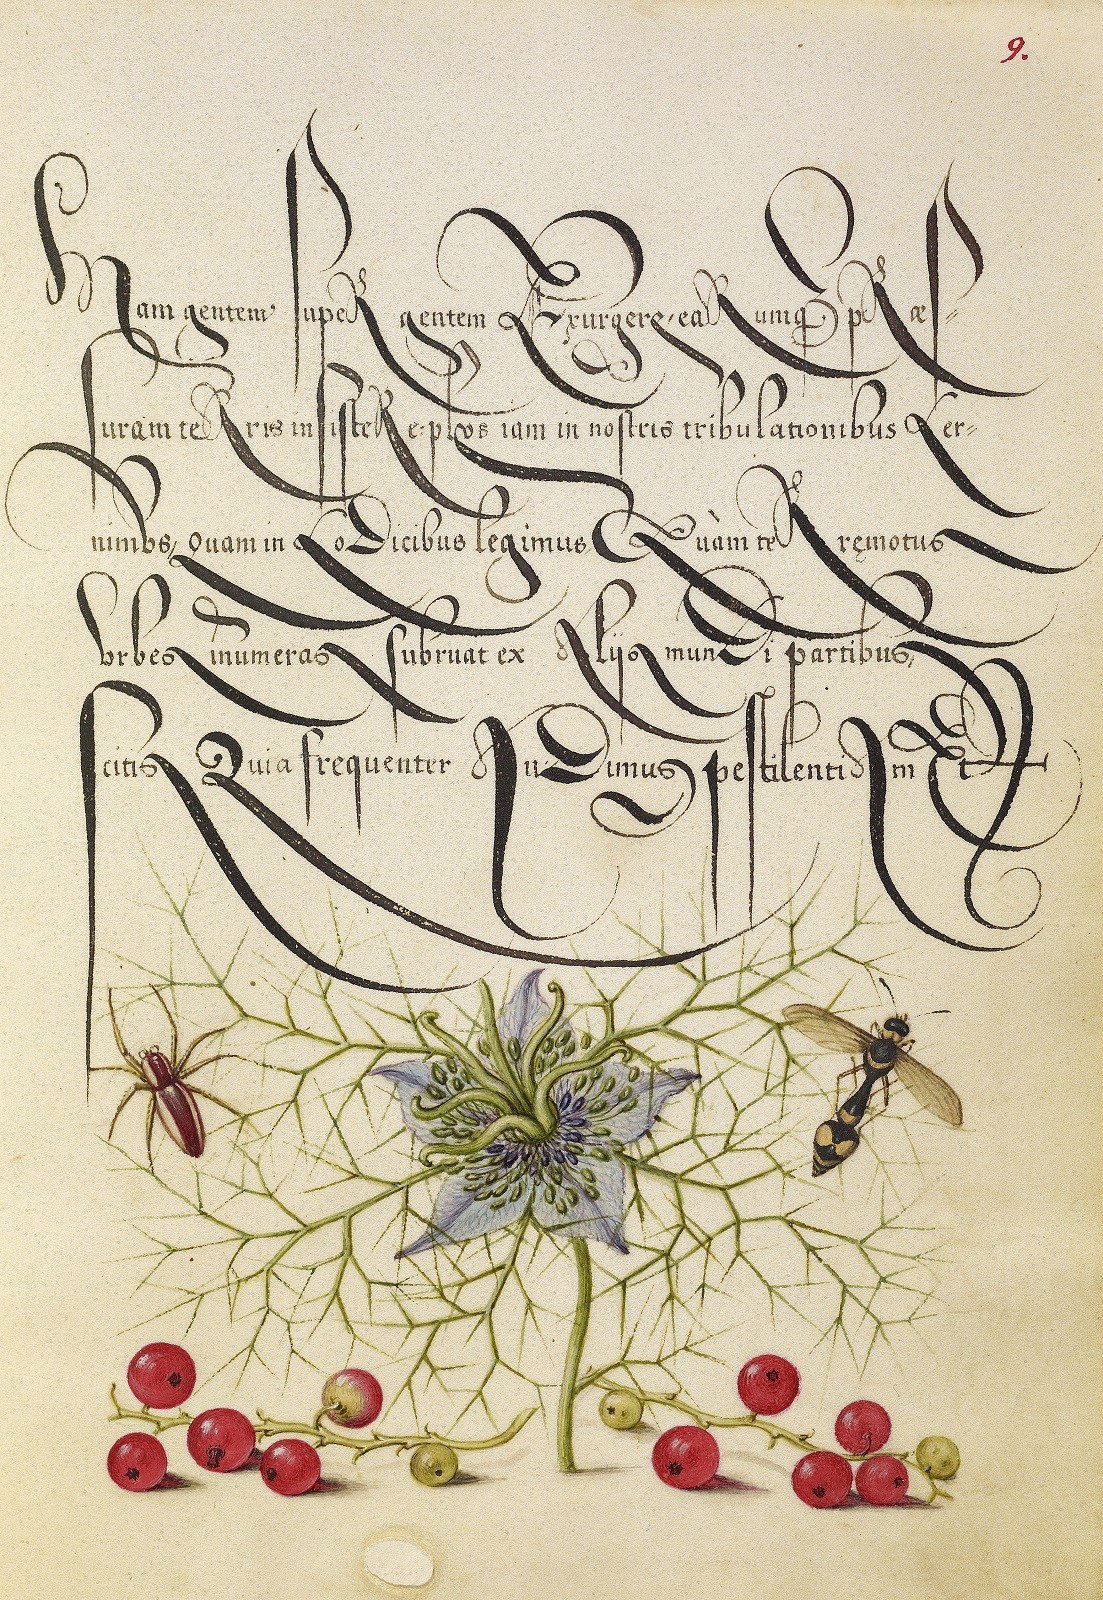 9.
Nam gentem super gentem Exurgere, earumq́ȝ præs=
suram terris insistere, plvs iam in nostris tribulationibus Cer=
nimvs, Quam in CoDicibus legimus, Quàm terręmotus
vrbes iñumeras subruat ex Alijs munDi partibus,
scitis Quia frequenter AuDimus pestilentiAm Et